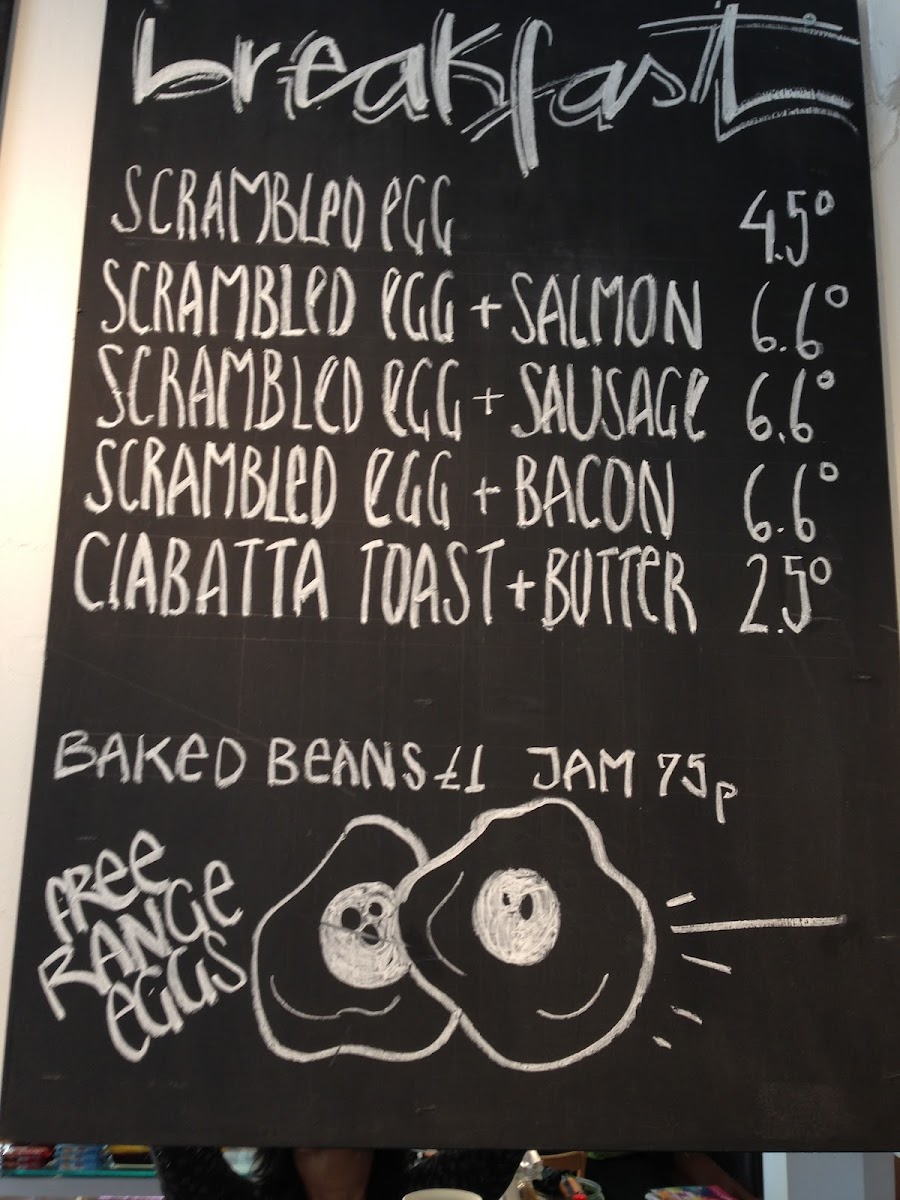 breakfast
SCRAMBLeD eGG 4.5⁰
SCRAMBLeD eGG + SALMON 6.6⁰
SCRAMBLeD eGG + SAUSAGe 6.6⁰
SCRAMBLeD eGG + BACON 6.6⁰
CIABATTA TOAST + BUTTeR 2.5⁰
BAKeD BeANS £1 JAM 75p
FRee
RANGe
eGGS